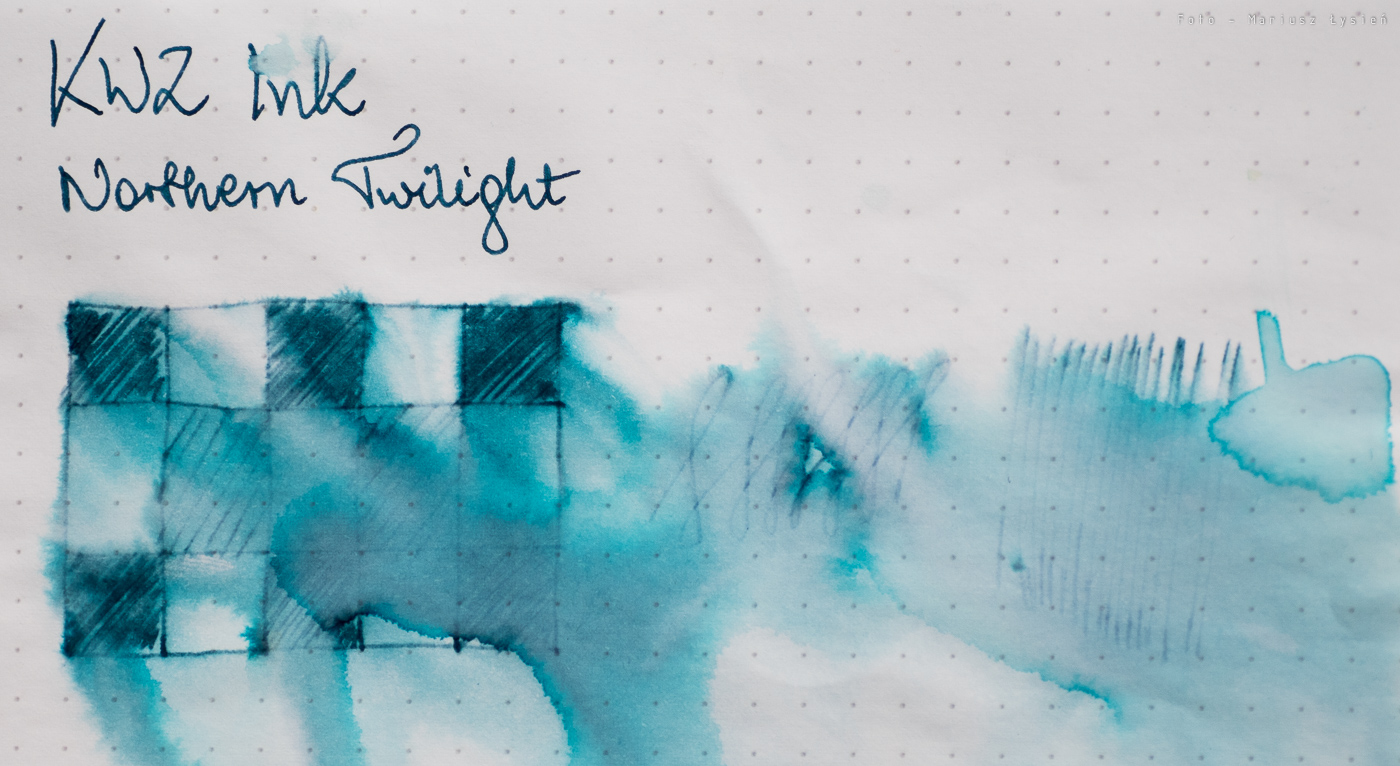 Foto - Mariusz Łysień
KWZ Ink
Northern Twilight